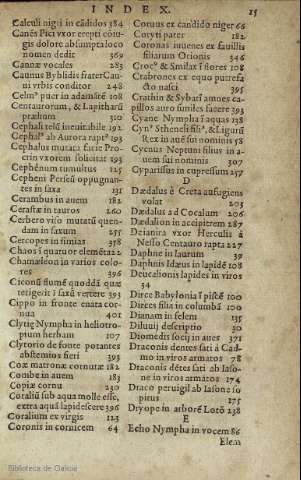 INDEX. 15
Calculi nigri in cãdidos 384
Canés Pici vxor erepti cõiu-
gis dolore absumpta loco
nomen dedit 369
Cannæ vocales 283
Caunus Byblidis frater Cau-
ni vrbis conditor 248
Celmꝰ puer in adamãtẽ 108
Centaurorum, & Lapitharũ
prælium 310
Cephali telũ ineuitabile 192
Cephalꝰ ab Aurora raptꝰ 193
Cephalus mutata facie Pro-
crin vxorem solicitat 193
Cephenum tumultus 125
Cepheni Perseũ oppugnan-
tes in saxa 131
Cerambus in auem 182
Cerastæ in tauros 260
Cerbero viso mutatũ quen-
dam in saxum 255
Cercopes in simias 358
Chaos ĩ quatuor elemẽta 2
Chamæleon in varios colo-
res 396
Ciconũ flumẽ quoddã quæ
tetigerit ĩ saxũ vertere 393
Cippo in fronte enata cor-
nua 401
Clytiȩ Nympha in heliotro-
pium herbam 107
Clytorio de fonte potantes
abstemios fieri 395
Coæ matronæ cornutæ 182
Combe in auem 183
Copiæ cornu 230
Coraliũ sub aqua molle esse,
extra aquã lapidescere 396
Coralium ex virgis 123
Coronis in cornicem 64
Coruus ex candido niger 66
Coryti pater 182
Coronas iuuenes ex fauillis
filiarum Orionis 346
Crocꝰ & Smilax ĩ flores 108
Crabrones ex equo putrefa
cto nasci 395
Crathin & Sybarĩ amnes ca-
pillos auro similes facere 393
Cyane Nympha ĩ aquas 138
Cynꝰ Stheneli filiꝰ, & Ligurũ
Rex in auẽ sui nominis 58
Cycnus Neptuni filius in a-
uem sui nominis 307
Cyparissus in cupressum 257
D
Dædalus è Creta aufugiens
volat 203
Dædalus ad Cocalum 206
Dædalion in accipitrem 287
Deianira vxor Herculis à
Nesso Centauro rapta 227
Daphne in laurum 39
Daphnis Idæus in lapidẽ 108
Deucalionis lapides in viros
34
Dirce Babylonia ĩ piscẽ 100
Dirces filia in columbã 100
Dianam in felem 135
Diluuij descriptio 30
Diomedis socij in aues 371
Draconis dentes sati à Cad-
mo in viros armatos 78
Draconis dẽtes sati ab Iaso-
ne in viros armatos 174
Draco peruigil ab Iasone so
pitus 175
Dryope in arborẽ Lotõ 238
E
Echo Nympha in vocem 86
Elem
Biblioteca de Galicia